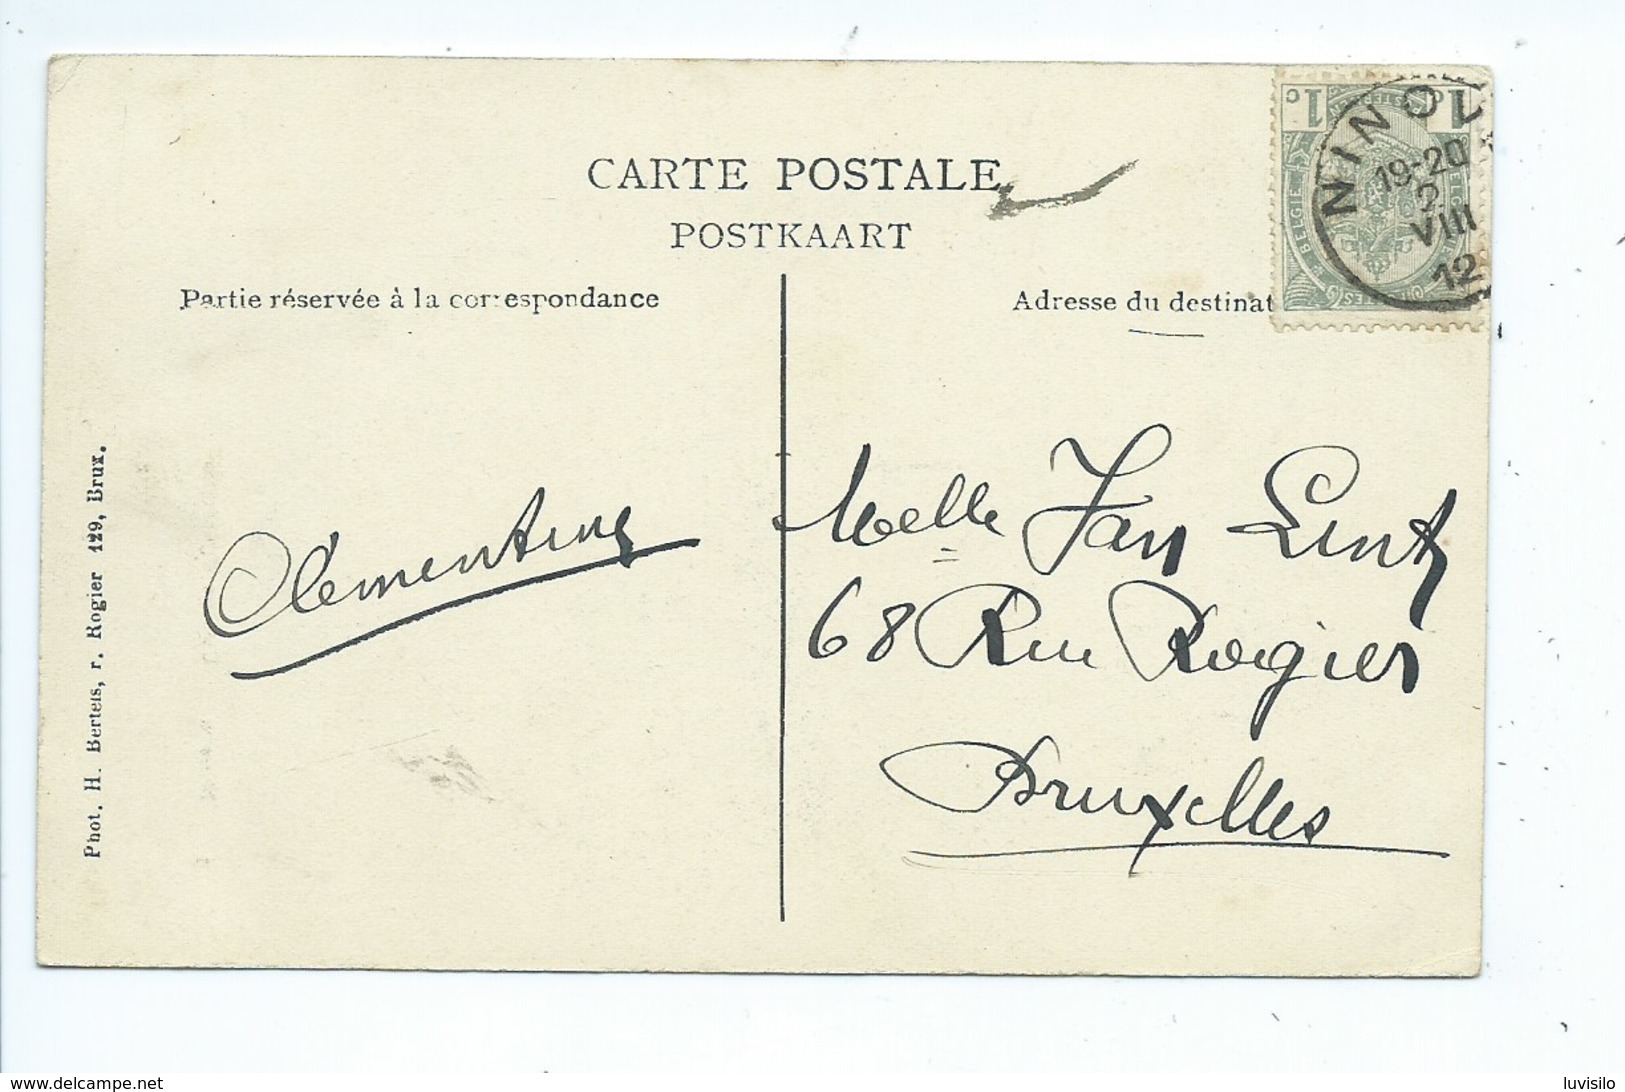 CARTE POSTALE
POSTKAART
Partie réservée à la correspondance
Adresse du destinat
1 c
c 1
BELGIE
NINOV
19-20
2
VIII
12
Clementine
Melle Jan Lint
68 Rue Rogier
Bruxelles
Phot. H. Bertels, r. Rogier 129, Brux.
delcampe.net
luvisilo